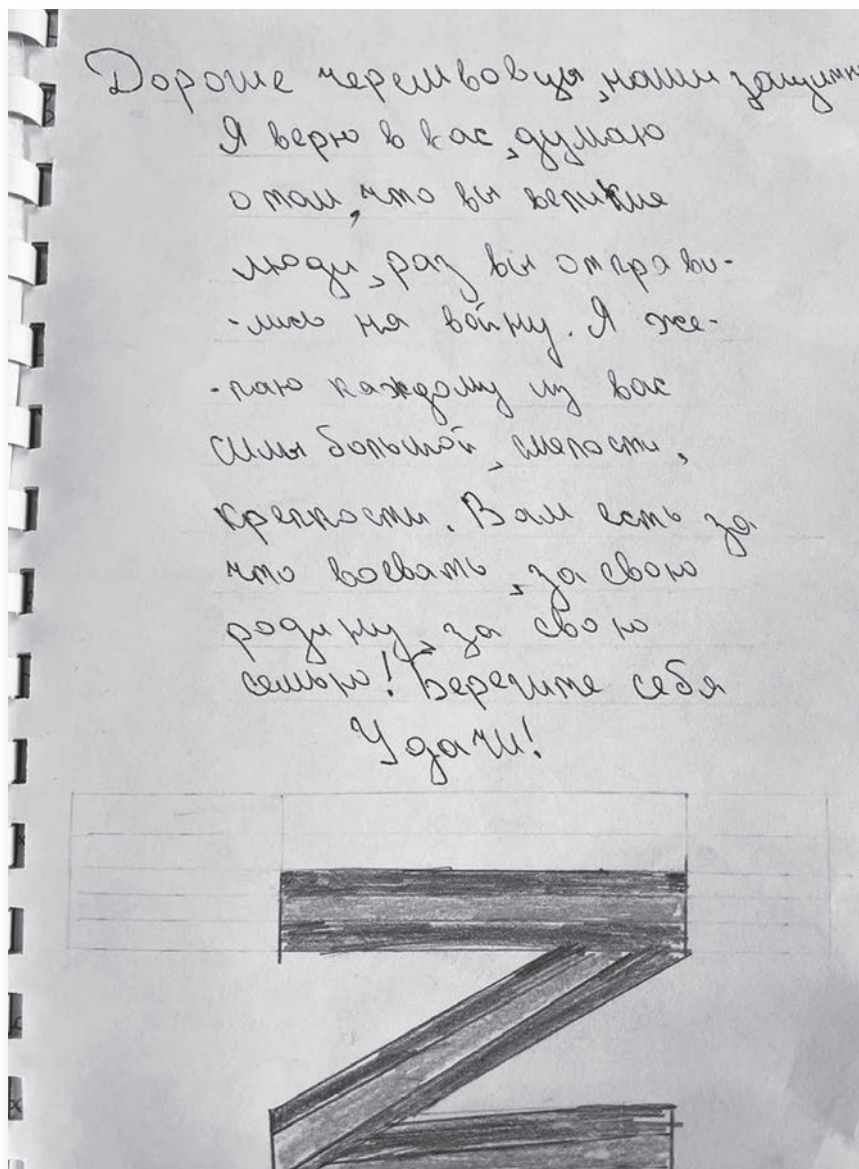 Дорогие черемховцы, наши защитн
Я верю в вас, думаю
о том, что вы великие
люди, раз вы отправи-
-лись на войну. Я же-
-лаю каждому из вас
силы большой, смелости,
крепкости. Вам есть за
что воевать, за свою
родину, за свою
семью! Берегите себя
Удачи!
Z